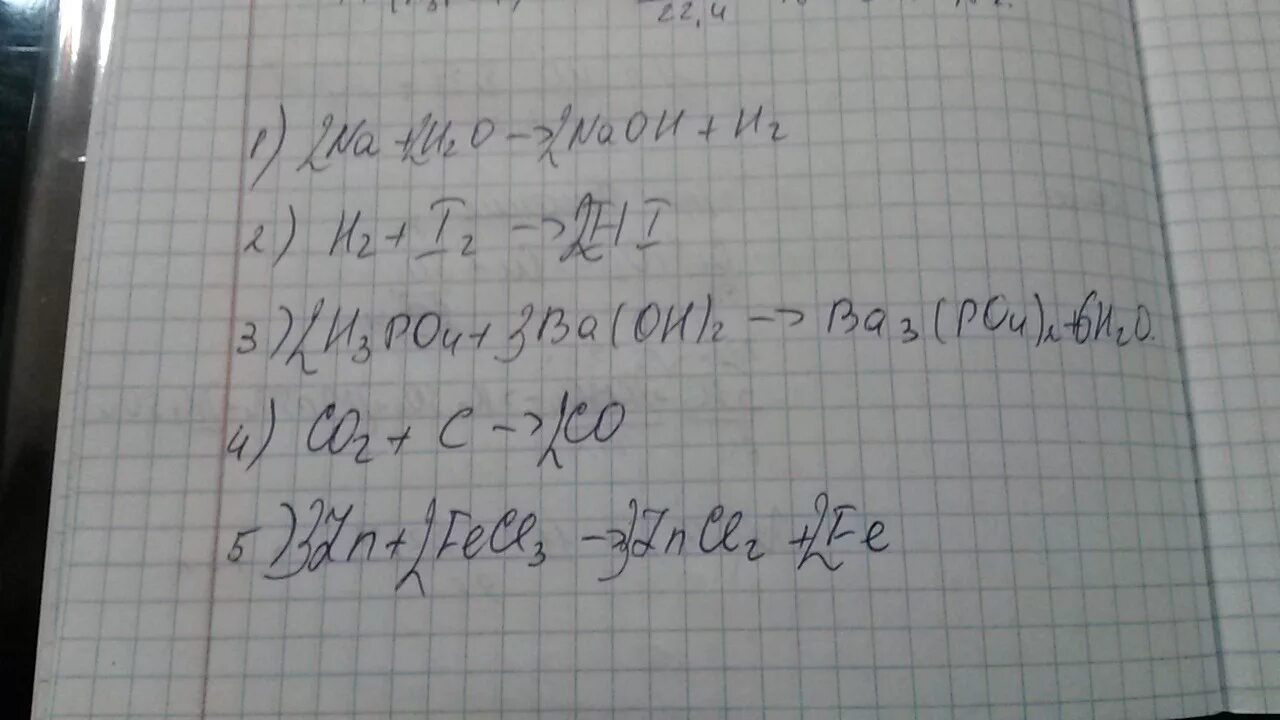 22,4
1) 2Na + 2H₂O → 2NaOH + H₂
2) H₂ + I₂ → 2HI
3) 2H₃PO₄ + 3Ba(OH)₂ → Ba₃(PO₄)₂ + 6H₂O.
4) CO₂ + C → 2CO
5) 3Zn + 2FeCl₃ → 3ZnCl₂ + 2Fe